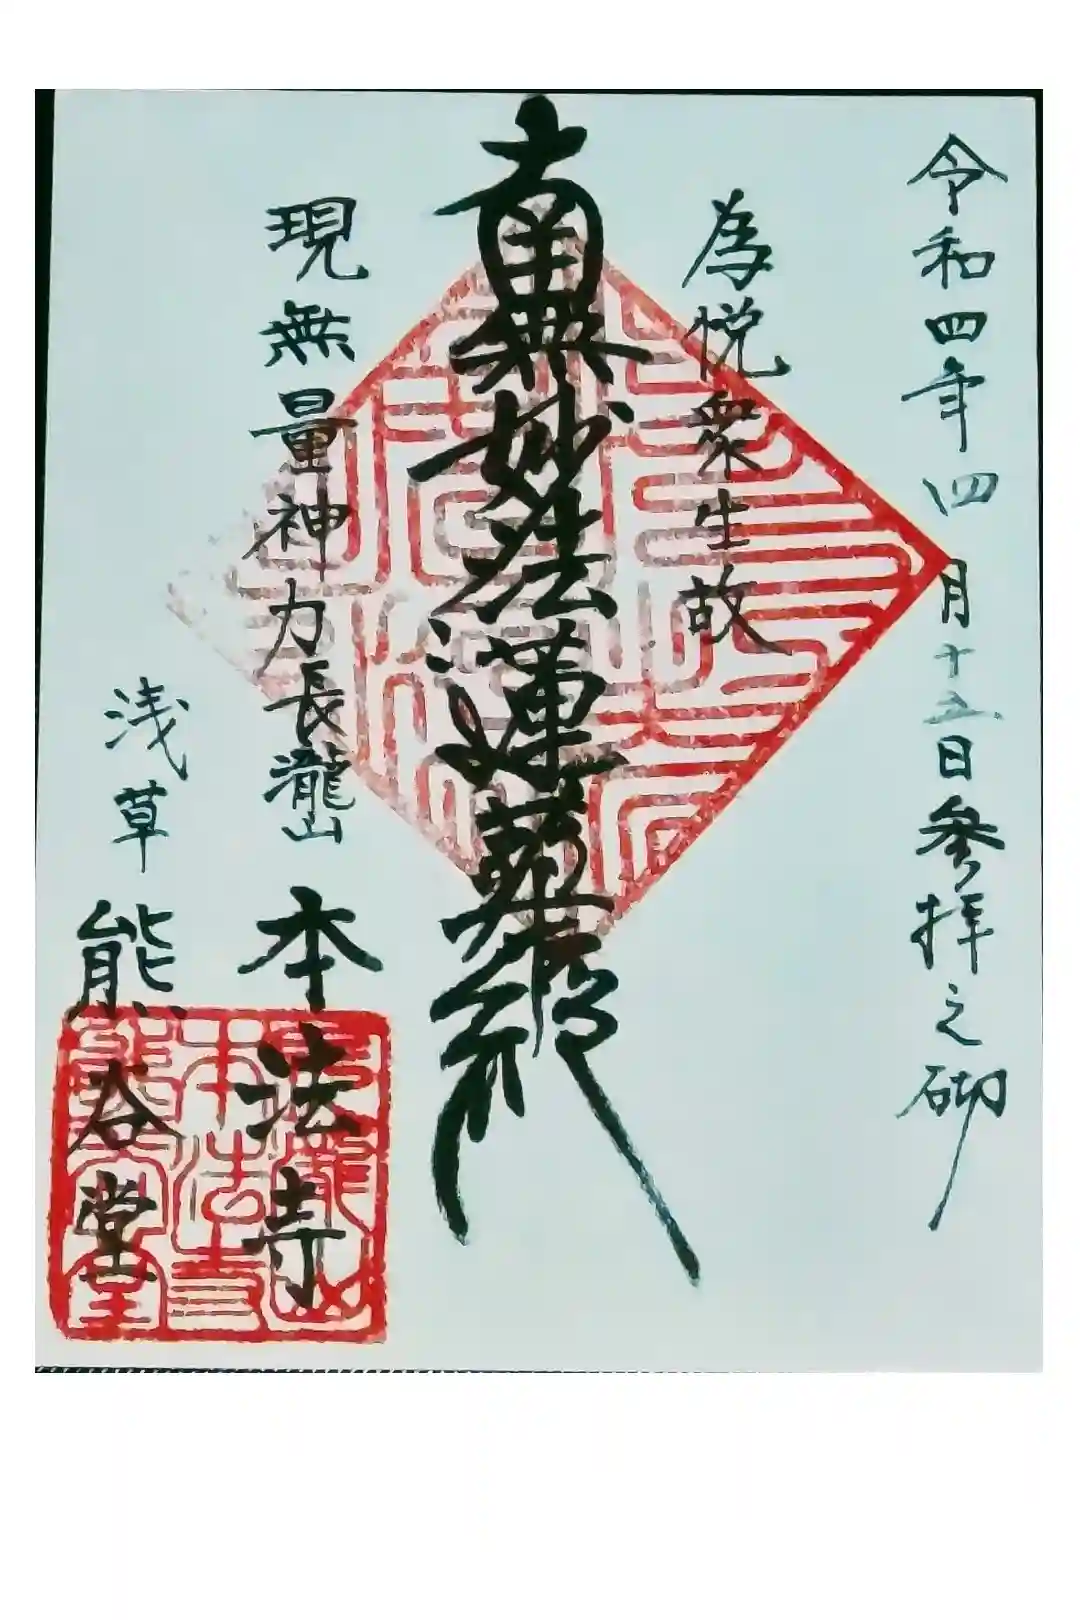 令和四年四月十五日参拝之砌
為悦衆生故
南無妙法蓮華経
現無量神力
長瀧山
本法寺
浅草
熊谷堂
長瀧山
本法寺
熊谷堂